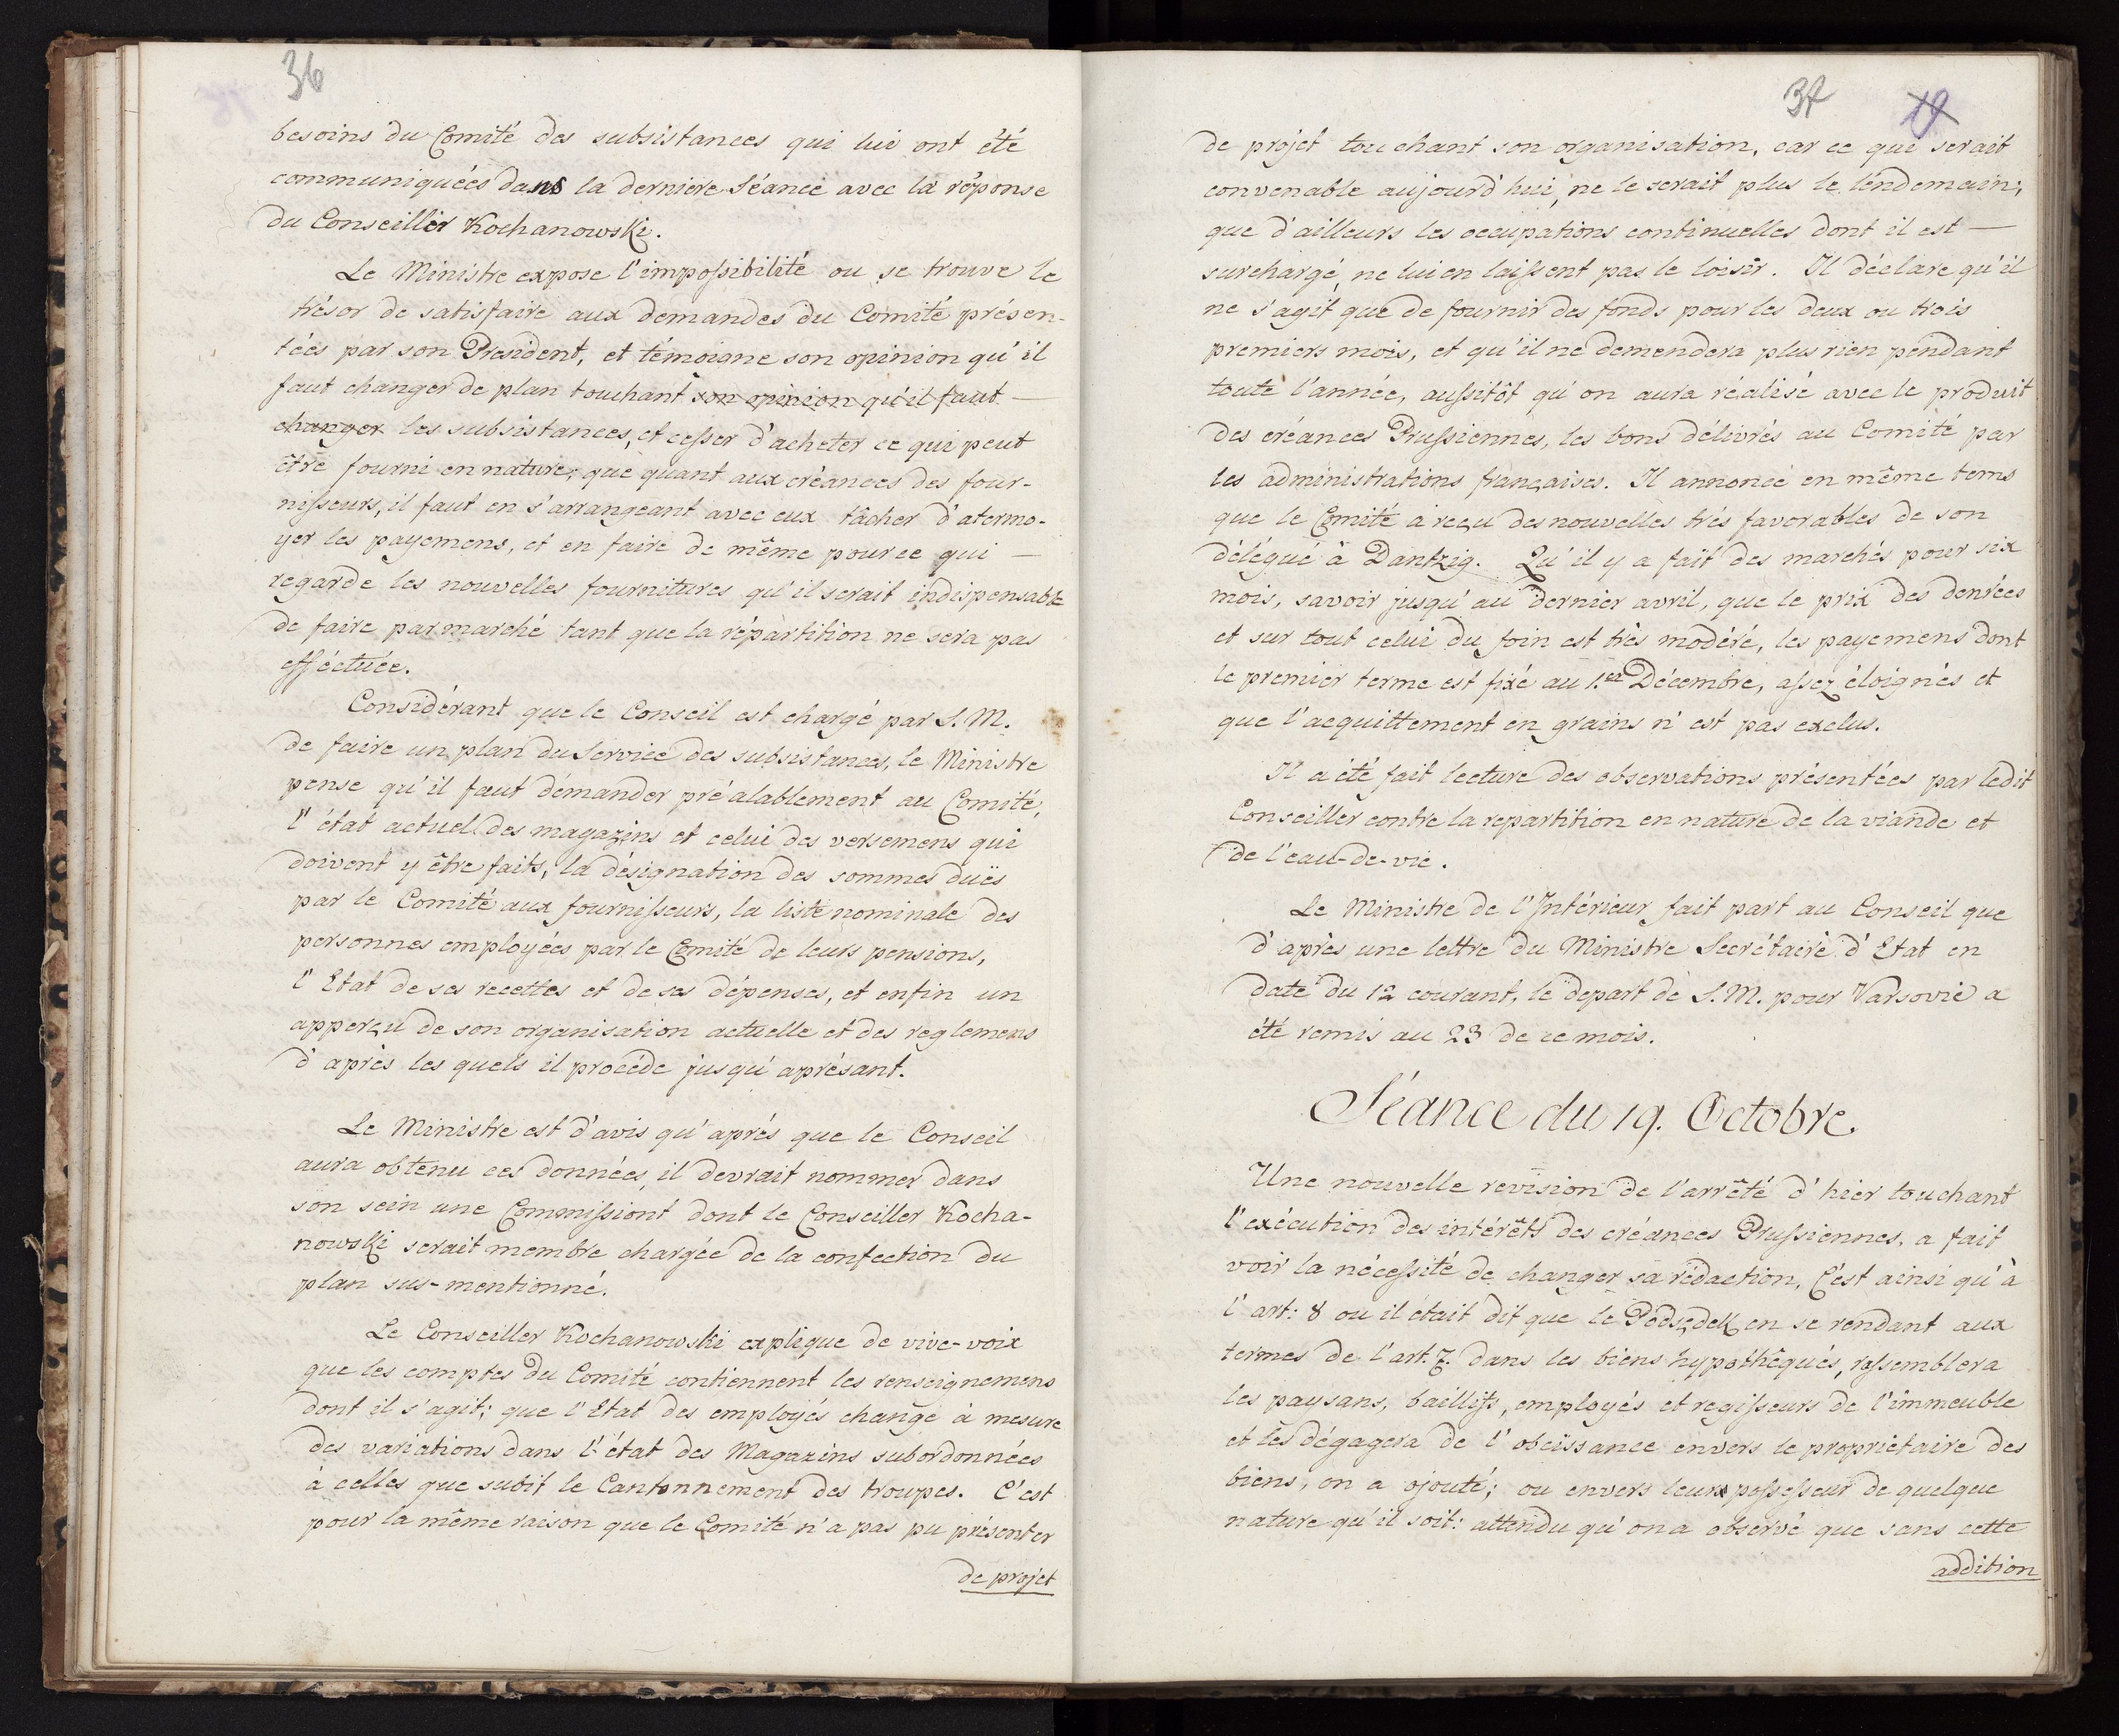 36
besoins du Comité des subsistances qui lui ont été
communiquées dans la derniere Séance avec la réponse
du Conseiller Kochanowski.
Le Ministre expose l'impossibilité ou se trouve le
trésor de satisfaire aux demandes du Comité présen-
tées par son President, et témoigne son opinion qu'il
faut changer de plan touchant son opinion qu'il faut —
changer les subsistances, et cesser d'acheter ce qui peut
être fourni en nature; que quant aux créances des four-
nisseurs, il faut en s'arrangeant avec eux tâcher d'atermo-
yer les payemens, et en faire de même pour ce qui —
regarde les nouvelles fournitures qu'il serait indispensable
de faire par marché tant que la répartition ne sera pas
efféctuée.
Considérant que le Conseil est chargé par S. M.
de faire un plan du Service des subsistances, le Ministre
pense qu'il faut démander préalablement au Comité,
l'état actuel des magazins et celui des versemens qui
doivent y être faits, la désignation des sommes duës
par le Comité aux fournisseurs, la liste nominale des
personnes employées par le Comité de leurs pensions,
l'Etat de ses recettes et de ses dépenses, et enfin un
apperçu de son organisation actuelle et des reglemens
d'après les quels il procéde jusqu'aprésant.
Le Ministre est d'avis qu'aprés que le Conseil
aura obtenu ces données, il devrait nommer dans
son sein une Commissiont dont le Conseiller Kocha-
nowski serait membre chargée de la confection du
plan sus-mentionné.
Le Conseiller Kochanowski explique de vive-voix
que les comptes du Comité contiennent les renseignemens
dont il s'agit; que l'Etat des employés change à mesure
des variations dans l'état des Magazins subordonnées
à celles que subit le Cantonnement des troupes. C'est
pour la même raison que le Comité n'a pas pu présenter
de projet
37 19
de projet touchant son organisation, car ce qui serait
convenable aujourd'hui, ne le serait plus le lendemain;
que d'ailleurs les occupations continuelles dont il est —
surchargé, ne lui en laissent pas le loisir. Il déclare qu'il
ne s'agit que de fournir des fonds pour les deux ou trois
premiers mois, et qu'il ne demendera plus rien pendant
toute l'année, aussitôt qu'on aura réalisé avec le produit
des créances Prussiennes, les bons délivrés au Comité par
les administrations françaises. Il annonce en même tems
que le Comité a reçu des nouvelles trés favorables de son
délégué à Dantzig. Qu'il y a fait des marchés pour six
mois, savoir jusqu'au dernier avril, que le prix des denrées
et sur tout celui du foin est très modéré, les payemens dont
le premier terme est fixé au 1.er Décembre, assez éloignés et
que l'acquittement en grains n'est pas exclus.
Il a été fait lecture des observations présentées par ledit
Conseiller contre la repartition en nature de la viande et
de l'eau-de-vie.
Le Ministre de l'Intérieur fait part au Conseil que
d'aprés une lettre du Ministre Secrétaire d'Etat en
date du 12 courant, le depart de S. M. pour Varsovie a
été remis au 23 de ce mois.
Séance du 19. Octobre.
Une nouvelle revision de l'arrêté d'hier touchant
l'exécution des intérêts des créances Prussiennes, a fait
voir la nécessité de changer sa rédaction, C'est ainsi qu'à
l'art: 8 ou il était dit que le Podsędek en se rendant aux
termes de l'art. 7. dans les biens hypothêqués, rassemblera
les paysans, baillifs, employés et regisseurs de l'immeuble
et les dégagera de l'obeissance envers le propriétaire des
biens, on a ajouté; ou envers leurs possesseur de quelque
nature qu'il soit: attendu qu'on a observé que sans cette
addition